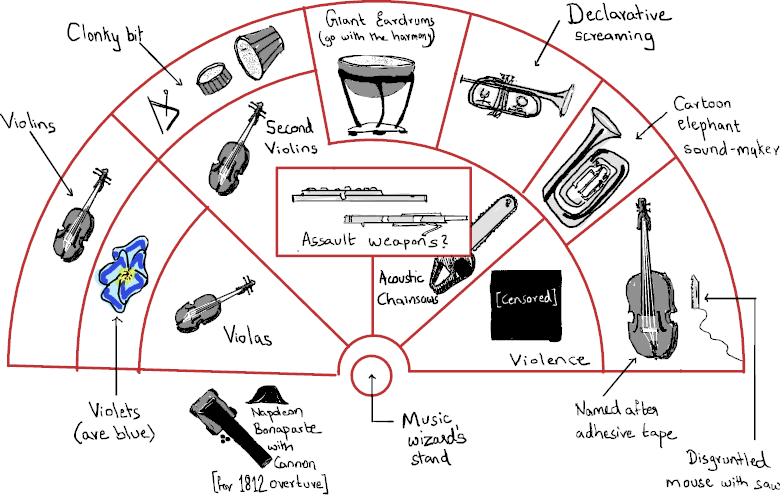 Giant Eardrums
(go with the harmony)
Declarative
screaming
Clonky bit
Violins
Second
Violins
Cartoon
elephant
sound-maker
Assault weapons?
Acoustic
Chainsaws
[Censored]
Violas
Violence
Violets
(are blue)
Napoleon
Bonaparte
with
Cannon
[for 1812 overture]
Music
wizard's
stand
Named after
adhesive tape
Disgruntled
mouse with saw